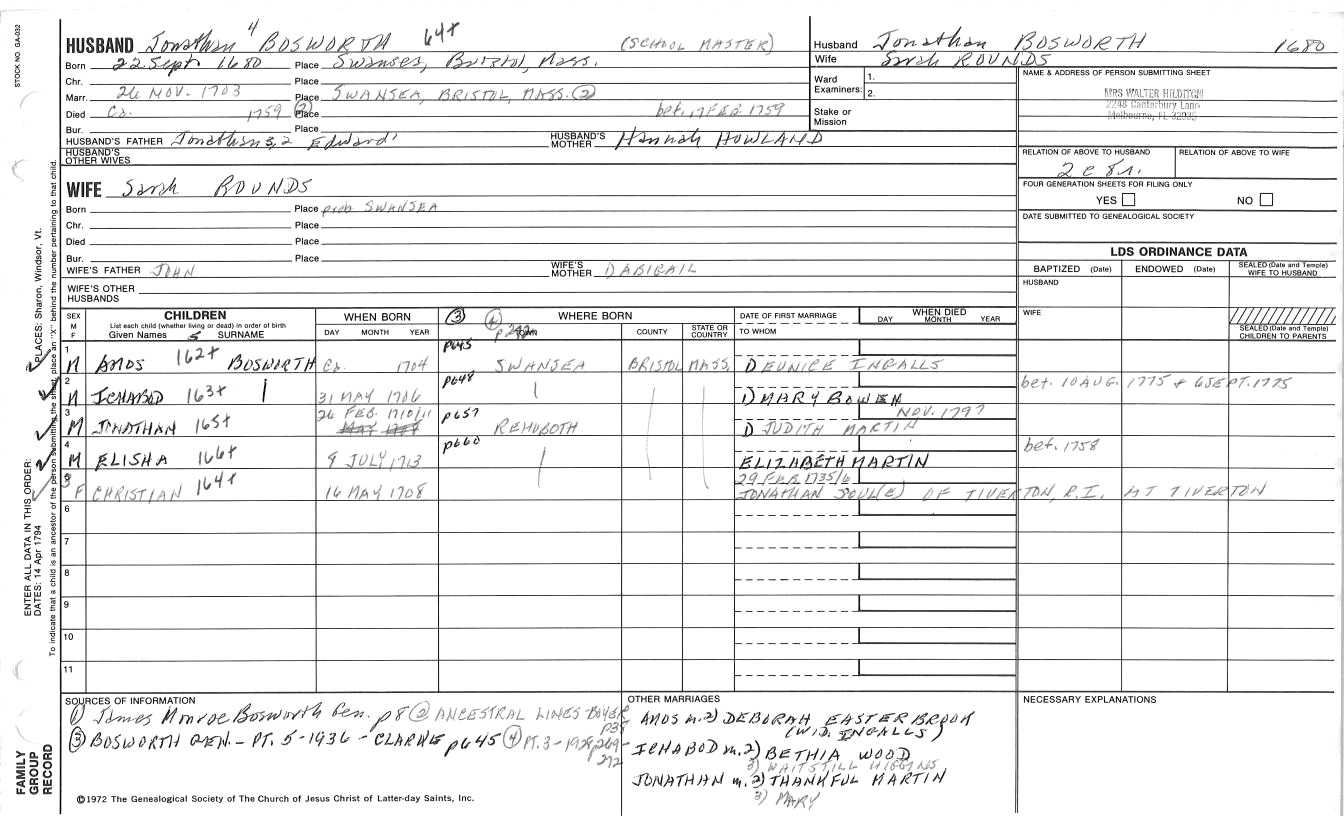 STOCK NO. GA-032
HUSBAND Jonathan 4 BOSWORTH 64+ (SCHOOL MASTER)
Born 22 Sept 1680 Place Swansea, Bristol, Mass.
Chr. Place
Marr. 26 NOV. 1703 Place SWANSEA, BRISTOL, MASS. (2)
Died Ca. 1759 (2) Place bet. 17 FEB 1759
Bur. Place
HUSBAND'S FATHER Jonathan 3, 2 Edward1 HUSBAND'S MOTHER Hannah HOWLAND
HUSBAND'S OTHER WIVES
WIFE Sarah ROUNDS
Born Place prob SWANSEA
Chr. Place
Died Place
Bur. Place
WIFE'S FATHER JOHN WIFE'S MOTHER 1) ABIGAIL
WIFE'S OTHER HUSBANDS
Husband Jonathan BOSWORTH 1680
Wife Sarah ROUNDS
Ward Examiners: 1.
2.
Stake or Mission
NAME & ADDRESS OF PERSON SUBMITTING SHEET
MRS WALTER
2248 Canterbury Lane
Melbourne, FL
RELATION OF ABOVE TO HUSBAND RELATION OF ABOVE TO WIFE
2 c 8 r.
FOUR GENERATION SHEETS FOR FILING ONLY
YES NO
DATE SUBMITTED TO GENEALOGICAL SOCIETY
LDS ORDINANCE DATA
BAPTIZED (Date) ENDOWED (Date) SEALED (Date and Temple) WIFE TO HUSBAND
HUSBAND
WIFE
SEALED (Date and Temple) CHILDREN TO PARENTS
SEX M F CHILDREN List each child (whether living or dead) in order of birth Given Names 5 SURNAME WHEN BORN DAY MONTH YEAR (3) (4) WHERE BORN TOWN COUNTY STATE OR COUNTRY DATE OF FIRST MARRIAGE TO WHOM WHEN DIED DAY MONTH YEAR
1 M AMOS 162+ BOSWORTH Ca. 1704 p645 SWANSEA BRISTOL MASS. 1) EUNICE INGALLS
2 M ICHABOD 163+ 31 MAY 1706 p648 1) MARY BOWEN bet. 10 AUG. 1775 + 6 SEPT. 1775
3 M JONATHAN 165+ 26 FEB. 1710/11 p657 REHOBOTH 1) JUDITH MARTIN NOV. 1797
4 M ELISHA 166+ 9 JULY 1713 p660 ELIZABETH MARTIN bet. 1758
5 F CHRISTIAN 164+ 16 MAY 1708 29 FEB 1735/6
JONATHAN SOUL(E) OF TIVERTON, R.I. AT TIVERTON
6
7
8
9
10
11
SOURCES OF INFORMATION
(1) James Monroe Bosworth Gen. p 8 (2) ANCESTRAL LINES BOYER
(3) BOSWORTH GEN. - PT. 5 - 1936 - CLARKE p645 (4) PT. 3 - p269-272
OTHER MARRIAGES
AMOS m. 2) DEBORAH EASTERBROOK
(WID. INGALLS)
ICHABOD m. 2) BETHIA WOOD
3) WAITSTILL HIGGINS
JONATHAN m. 2) THANKFUL MARTIN
3) MARY
NECESSARY EXPLANATIONS
©1972 The Genealogical Society of The Church of Jesus Christ of Latter-day Saints, Inc.
ENTER ALL DATA IN THIS ORDER:
DATES: 14 Apr 1794 PLACES: Sharon, Windsor, Vt.
To indicate that a child is an ancestor of the person submitting the sheet, place an "X" behind the number pertaining to that child.
FAMILY GROUP RECORD